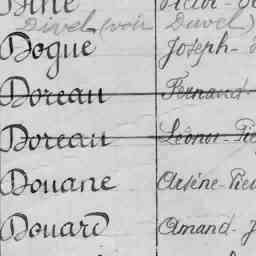 Divel (voir Duvel)
Dogue Joseph-
Doreau Fernand-
Doreau Léonor-Pie
Douane Arsène-Pier
Douard Amand-J